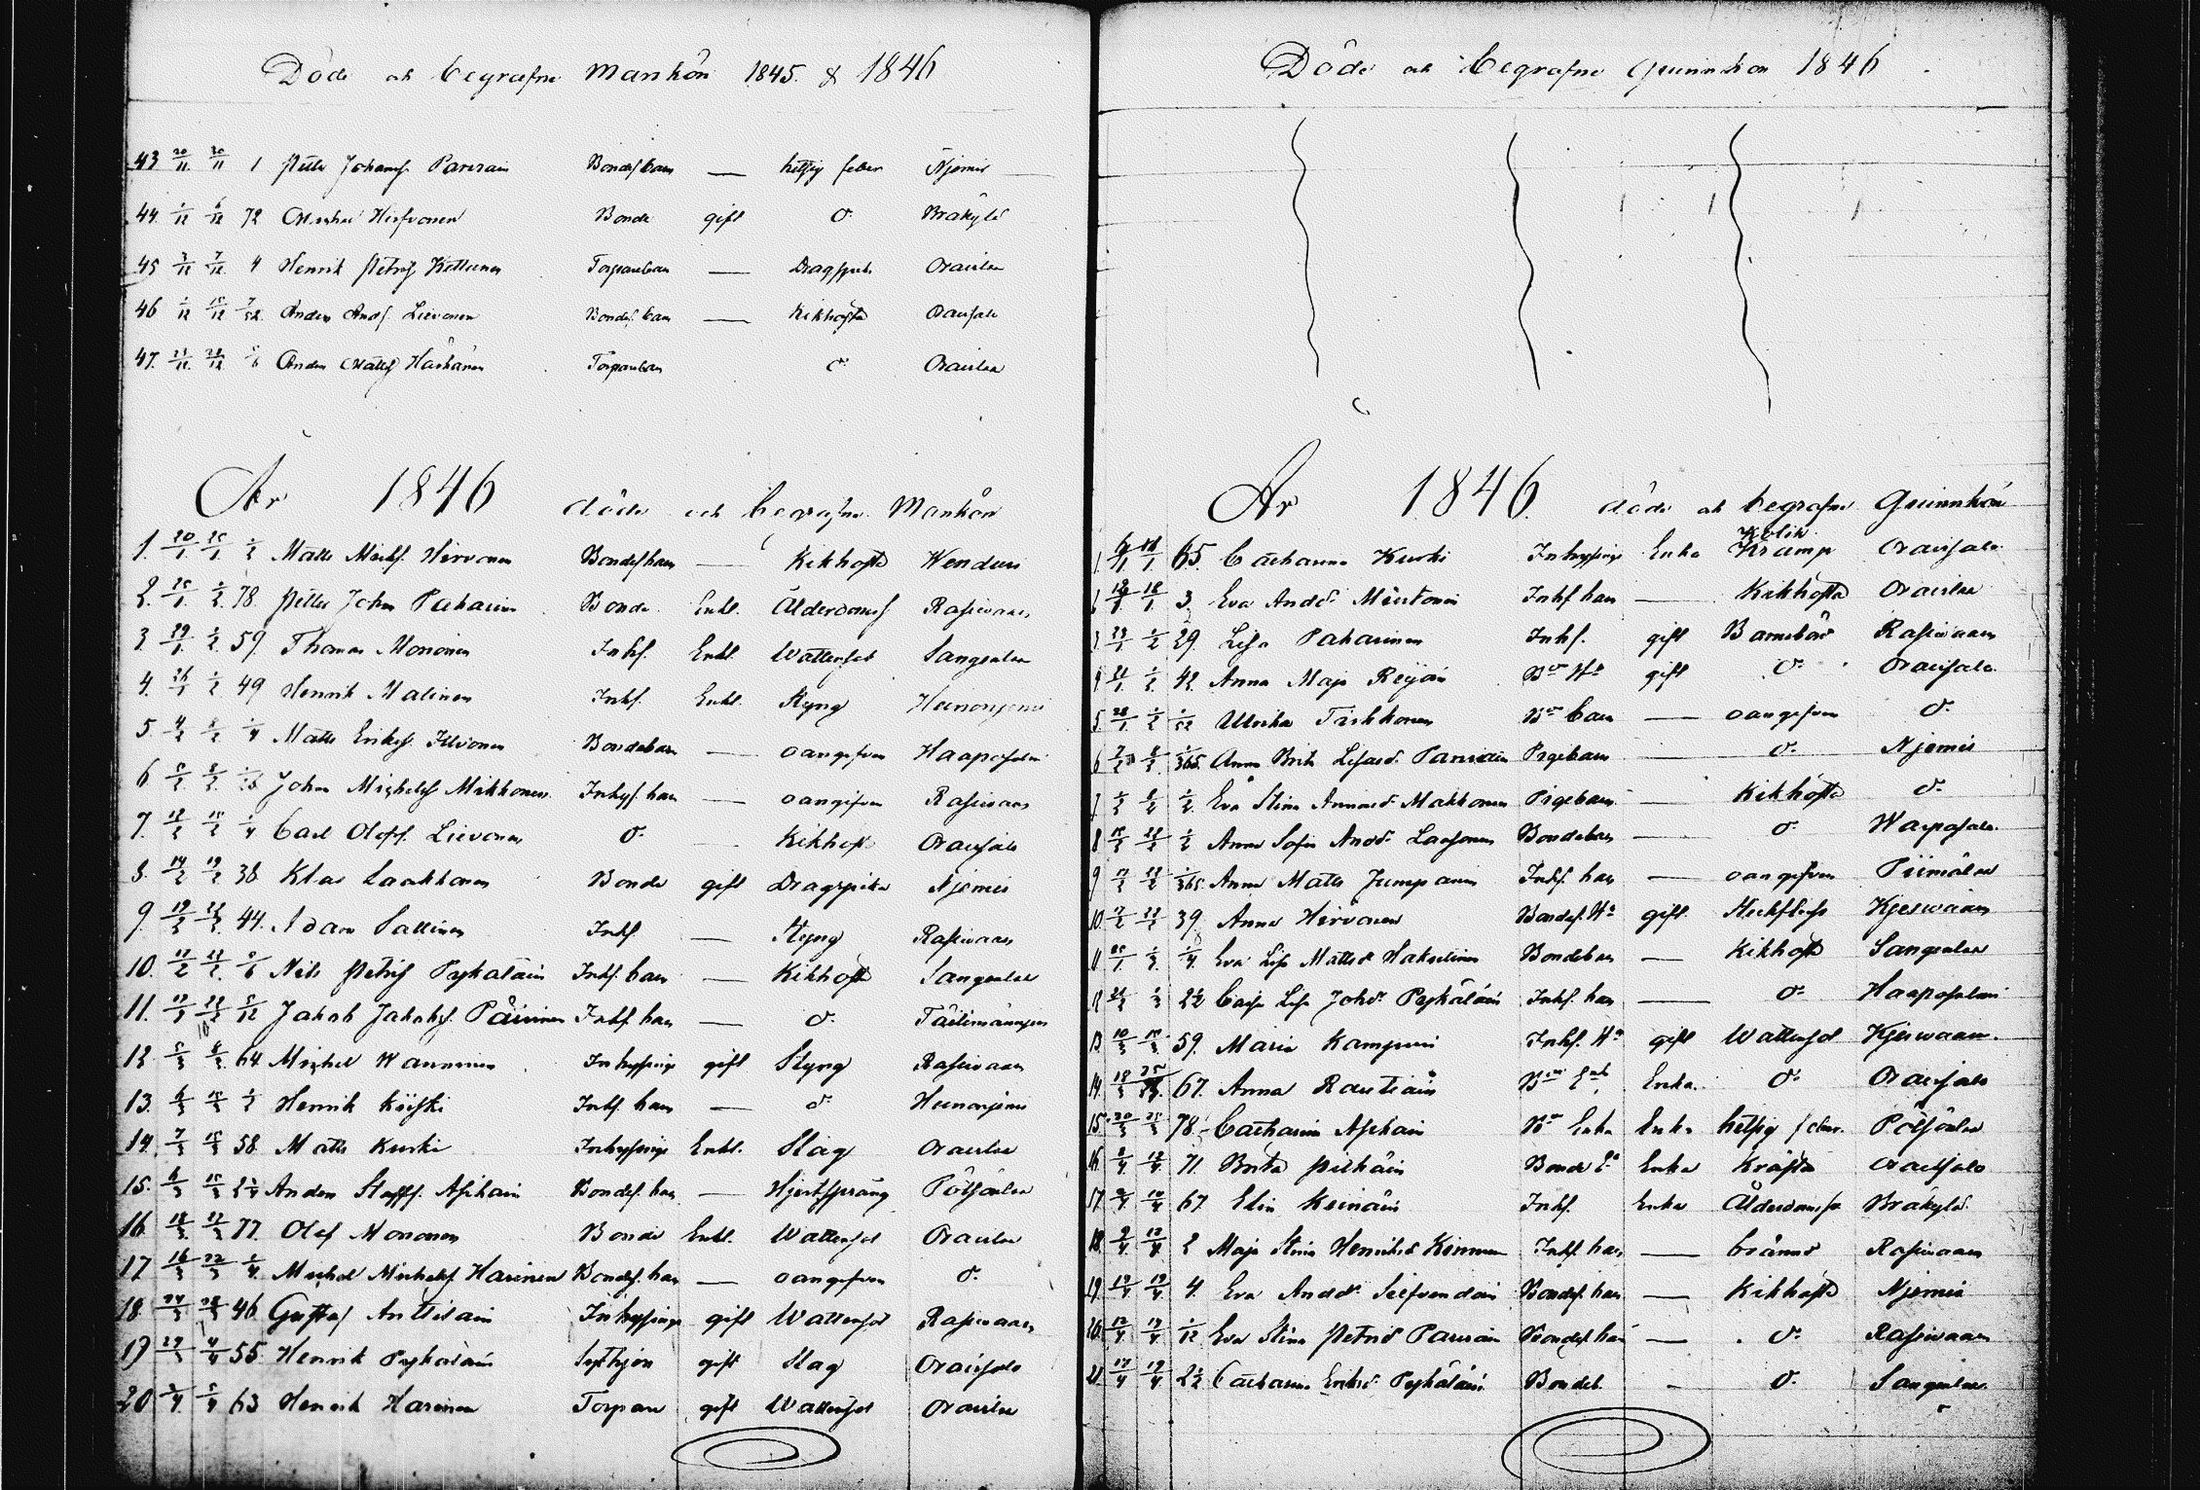 Döde och begrafne Mankön 1845. & 1846
43 20/11. 30/11 1 Petter Johansf. Parviain Bondes barn — hetsig feber Njemis
44. 1/12 6/12 72 Michel Hirfvonen Bonde gift d:o Bräkylä
45 3/12 7/12. 4 Henrik Petersf. Kettunen Torparebarn — Dragsjuka Oravilax
46 1/12 15/12 7/52. Anders Andf. Lievonen Bondes barn — Kikhosta Oravisalo
47. Anders Mattsf. Härkänen Torparebarn d:o Oravilax
År 1846 döde och begrafne Mankön
1. 20/1 25/1 1/2 Matts Michf. Hirvonen Bondes barn — Kikhosta Wenduri
2. 25/1. 1/2. 78. Petter Johns Pakarinen Bonde Enkl. Ålderdomsf Rasivaara
3 29/1. 1/2. 59. Thomas Mononen Inhs. Enkl. Wattensot Sangenlax
4. 26/1 1/2 49 Henrik Malinen Inhs. Enkl. Styng Heinonjemi
5 4/2 8/2 1/4 Matts Eriksf. Ilvonen Bondebarn — oangifven Haaposalmi
6 5/2 8/2. John Michelsf Mikkonen Inhys. barn — oangifven Rasivaara
7. 12/2 15/2 1/4 Carl Olofsf. Lievonen d:o Kikhost Oravisalo
8. 14/2 19/2 38 Klas Laakkonen Bonde gift Dragsjuka Njemis
9. 19/2 22/2 44. Adam Sallinen Inhs — Styng Rasivaara
10. 17/2 22/2. 5/6 Nils Petersf Pykäläin Inhs. barn — Kikhosta Sangenlax
11. Jakob Jakobsf. Päivinen Inhs. barn — d:o
12 5/3 8/3. 64 Michel Wanninen Inhysing gift Styng Rasivaara
13. 6/3 15/3 1/2 Henrik Kiiski Inhs. barn — d:o Heinonjemi
14. 7/3 15/3 58. Matts Kurki Inhysing Enkl. Slag Oravilax
15. 8/3 15/3 2 1/4 Anders Staffsf. Asikain Bondes. barn — Hjertsprång Pötsönlax
16. 12/3. 17/3 77. Olof Mononen Bonde Enkl. Wattensot Oravilax
17 16/3 22/3 1/4. Michel Michelsf. Harinen Bondes. barn — oangifven d:o
18. 24/3 28/3 46. Gustaf Anttilain Inhysing gift Wattensot Rasivaara
19 29/3 4/4 55. Henrik Pykäläin Sytthjon gift Slag Oravisalo
20 2/4. 5/4 63 Henrik Harinen Torpare gift Wattensot Oravilax
Döde och begrafne Qvinnkön 1846
År 1846. döde och begrafne Qvinnkön
Kolik
65. Catharina Kurki Inhysing Enka Kramp Oravisalo
3. Eva Andd:r Mustonen Inhs barn — Kikhosta Oravilax
29. Lisa Pakarinen Inhs. gift Barnsbörd Rasivaara
42. Anna Maja Reijoin B:de H:u gift d:o Oravisalo
5 28/1 1/2 1/52 Ulrika Tirkkonen B:de barn — oangifven d:o
6 1/365. Anna Brita Lisasd. Parviain Pigebarn d:o Njemis
1/2. Eva Stina Annasd. Makkonen Pigebarn — Kikhosta d:o
8 1/2 Anna Sofia Andd:r Laasonen Bondebarn — d:o Haaposalmi
9 1/365. Anna Matts Jumpanen Inhs. barn — oangifven Piimälax
10. 39. Anna Hirvonen Bondes. H:u gift. Kjesvaara
11 1/4. Eva Lisa Mattsd. Hakulinen Bondebarn — Kikhosta Sangenlax
12 2 1/2 Caisa Lisa Johd:r Pykäläin Inhs. barn — d:o Haaposalmi
13 10/3 15/3 59. Maria Kamppuri Inhs. H:u gift Wattensot Kjesvaara.
14. 18/3 25/3 67. Anna Rautiain B:de Enk. Enka. d:o Oravisalo
15. 20/3 25/3 78. Catharina Asikain B:de Enka Enka hetsig feber. Pötsönlax
16 8/4 12/4. 71 Brita Pirhöin Bonde E:a Enka Kräfta Oravisalo
17. 67. Elin Keinäin Inhs. Enka Ålderdomsf. Bräkylä
18. 9/4. 13/4 2 Maja Stina Henriksd. Kinnunen Inhs. barn — bränd Rasivaara
19. 4. Eva Andd:r Leifvendain Bondes. barn — Kikhosta Njemis
20. 1/12 Eva Stina Petersd. Parviain Bondes. barn — d:o Rasivaara
21. 17/4 19/4 2 1/2 Catharina Eriksd. Pykäläin. Bondeb. - d:o Sangenlax